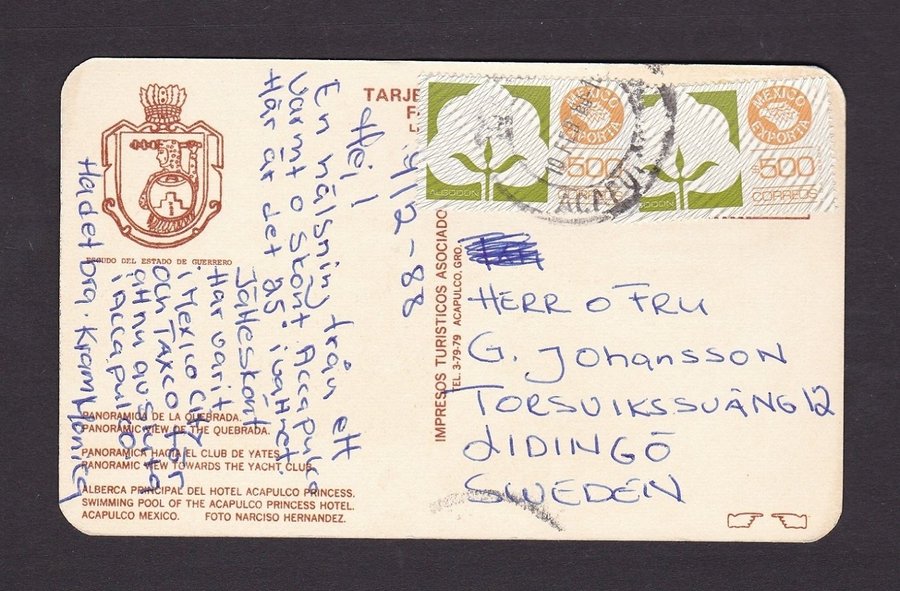 TARJE
ESCUDO DEL ESTADO DE GUERRERO
9/2-88
Hej!
En hälsning från ett
varmt o skönt Accapulco
Här är det 25° i vattnet.
Jätteskönt
Har varit
i Mexico City
och Taxco för
att nu avsluta
i Accapulco
Ha det bra. Kram Monica
PANORAMICA DE LA QUEBRADA.
PANORAMIC VIEW OF THE QUEBRADA.
PANORAMICA HACIA EL CLUB DE YATES.
PANORAMIC VIEW TOWARDS THE YACHT CLUB.
ALBERCA PRINCIPAL DEL HOTEL ACAPULCO PRINCESS.
SWIMMING POOL OF THE ACAPULCO PRINCESS HOTEL.
ACAPULCO MEXICO. FOTO NARCISO HERNANDEZ.
IMPRESOS TURISTICOS ASOCIADO
TEL. 3-79-79 ACAPULCO, GRO.
ALGODON
MEXICO EXPORTA
$500
CORREOS
ALGODON
MEXICO EXPORTA
$500
CORREOS
10 FEB
ACAPUL
HERR O FRU
G. JOHANSSON
TORSVIKSSVÄNG 12
LIDINGÖ
SWEDEN